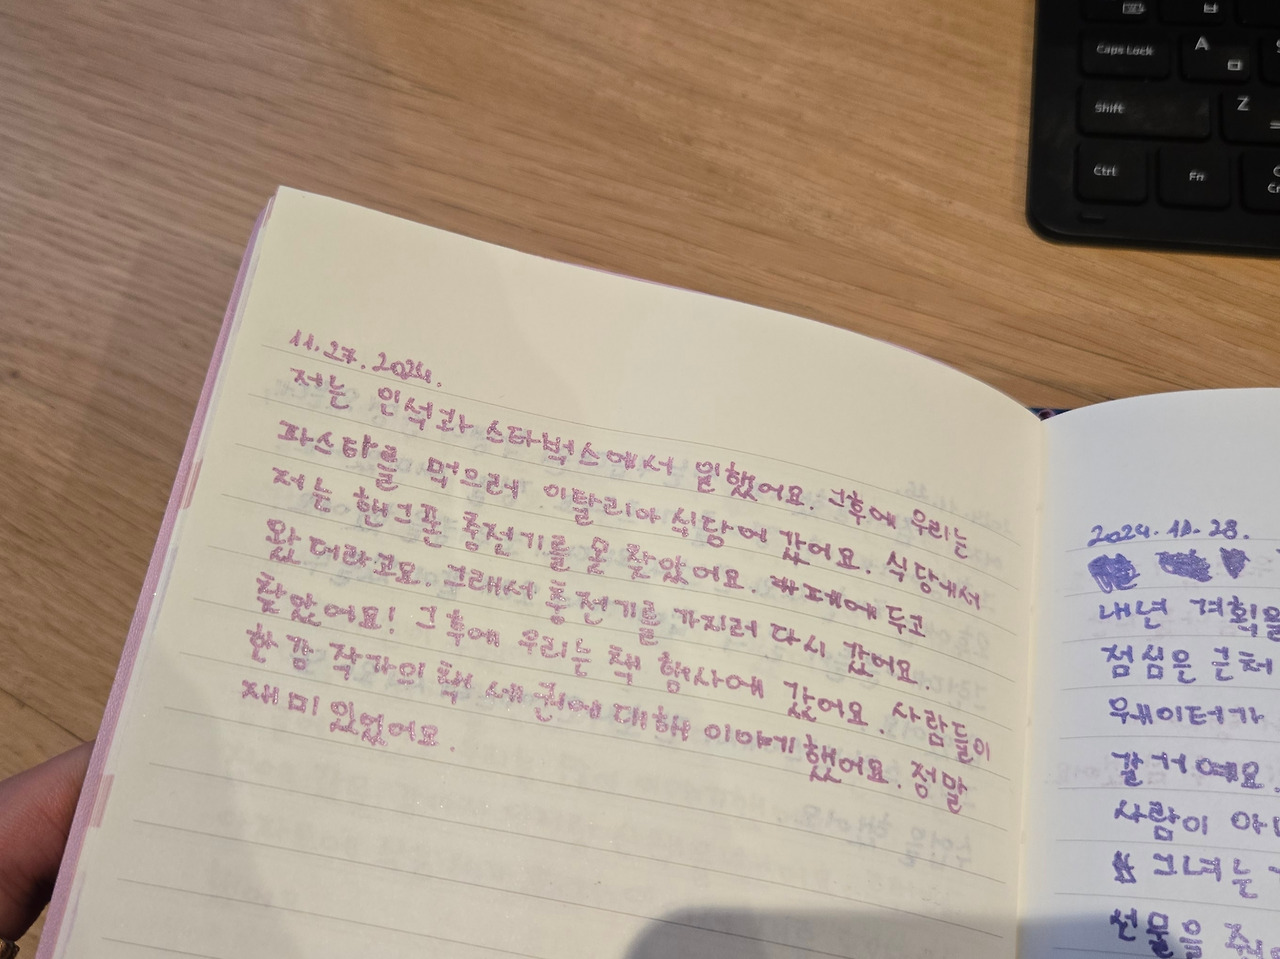 11.27.2024.
저는 인석과 스타벅스에서 일했어요. 그후에 우리는
파스타를 먹으러 이탈리아 식당에 갔어요. 식당에서
저는 핸드폰 충전기를 못 찾았어요. 카페에 두고
왔더라고요. 그래서 충전기를 가지러 다시 갔어요.
찾았어요! 그후에 우리는 책 행사에 갔어요. 사람들이
한강 작가의 책 세 권에 대해 이야기했어요. 정말
재미있었어요.
2024.11.28.
내년 계획을
점심은 근처
웨이터가
갈 거예요.
사람이 아
그녀는
선물을
Caps Lock
A
Shift
Z
Ctrl
Fn